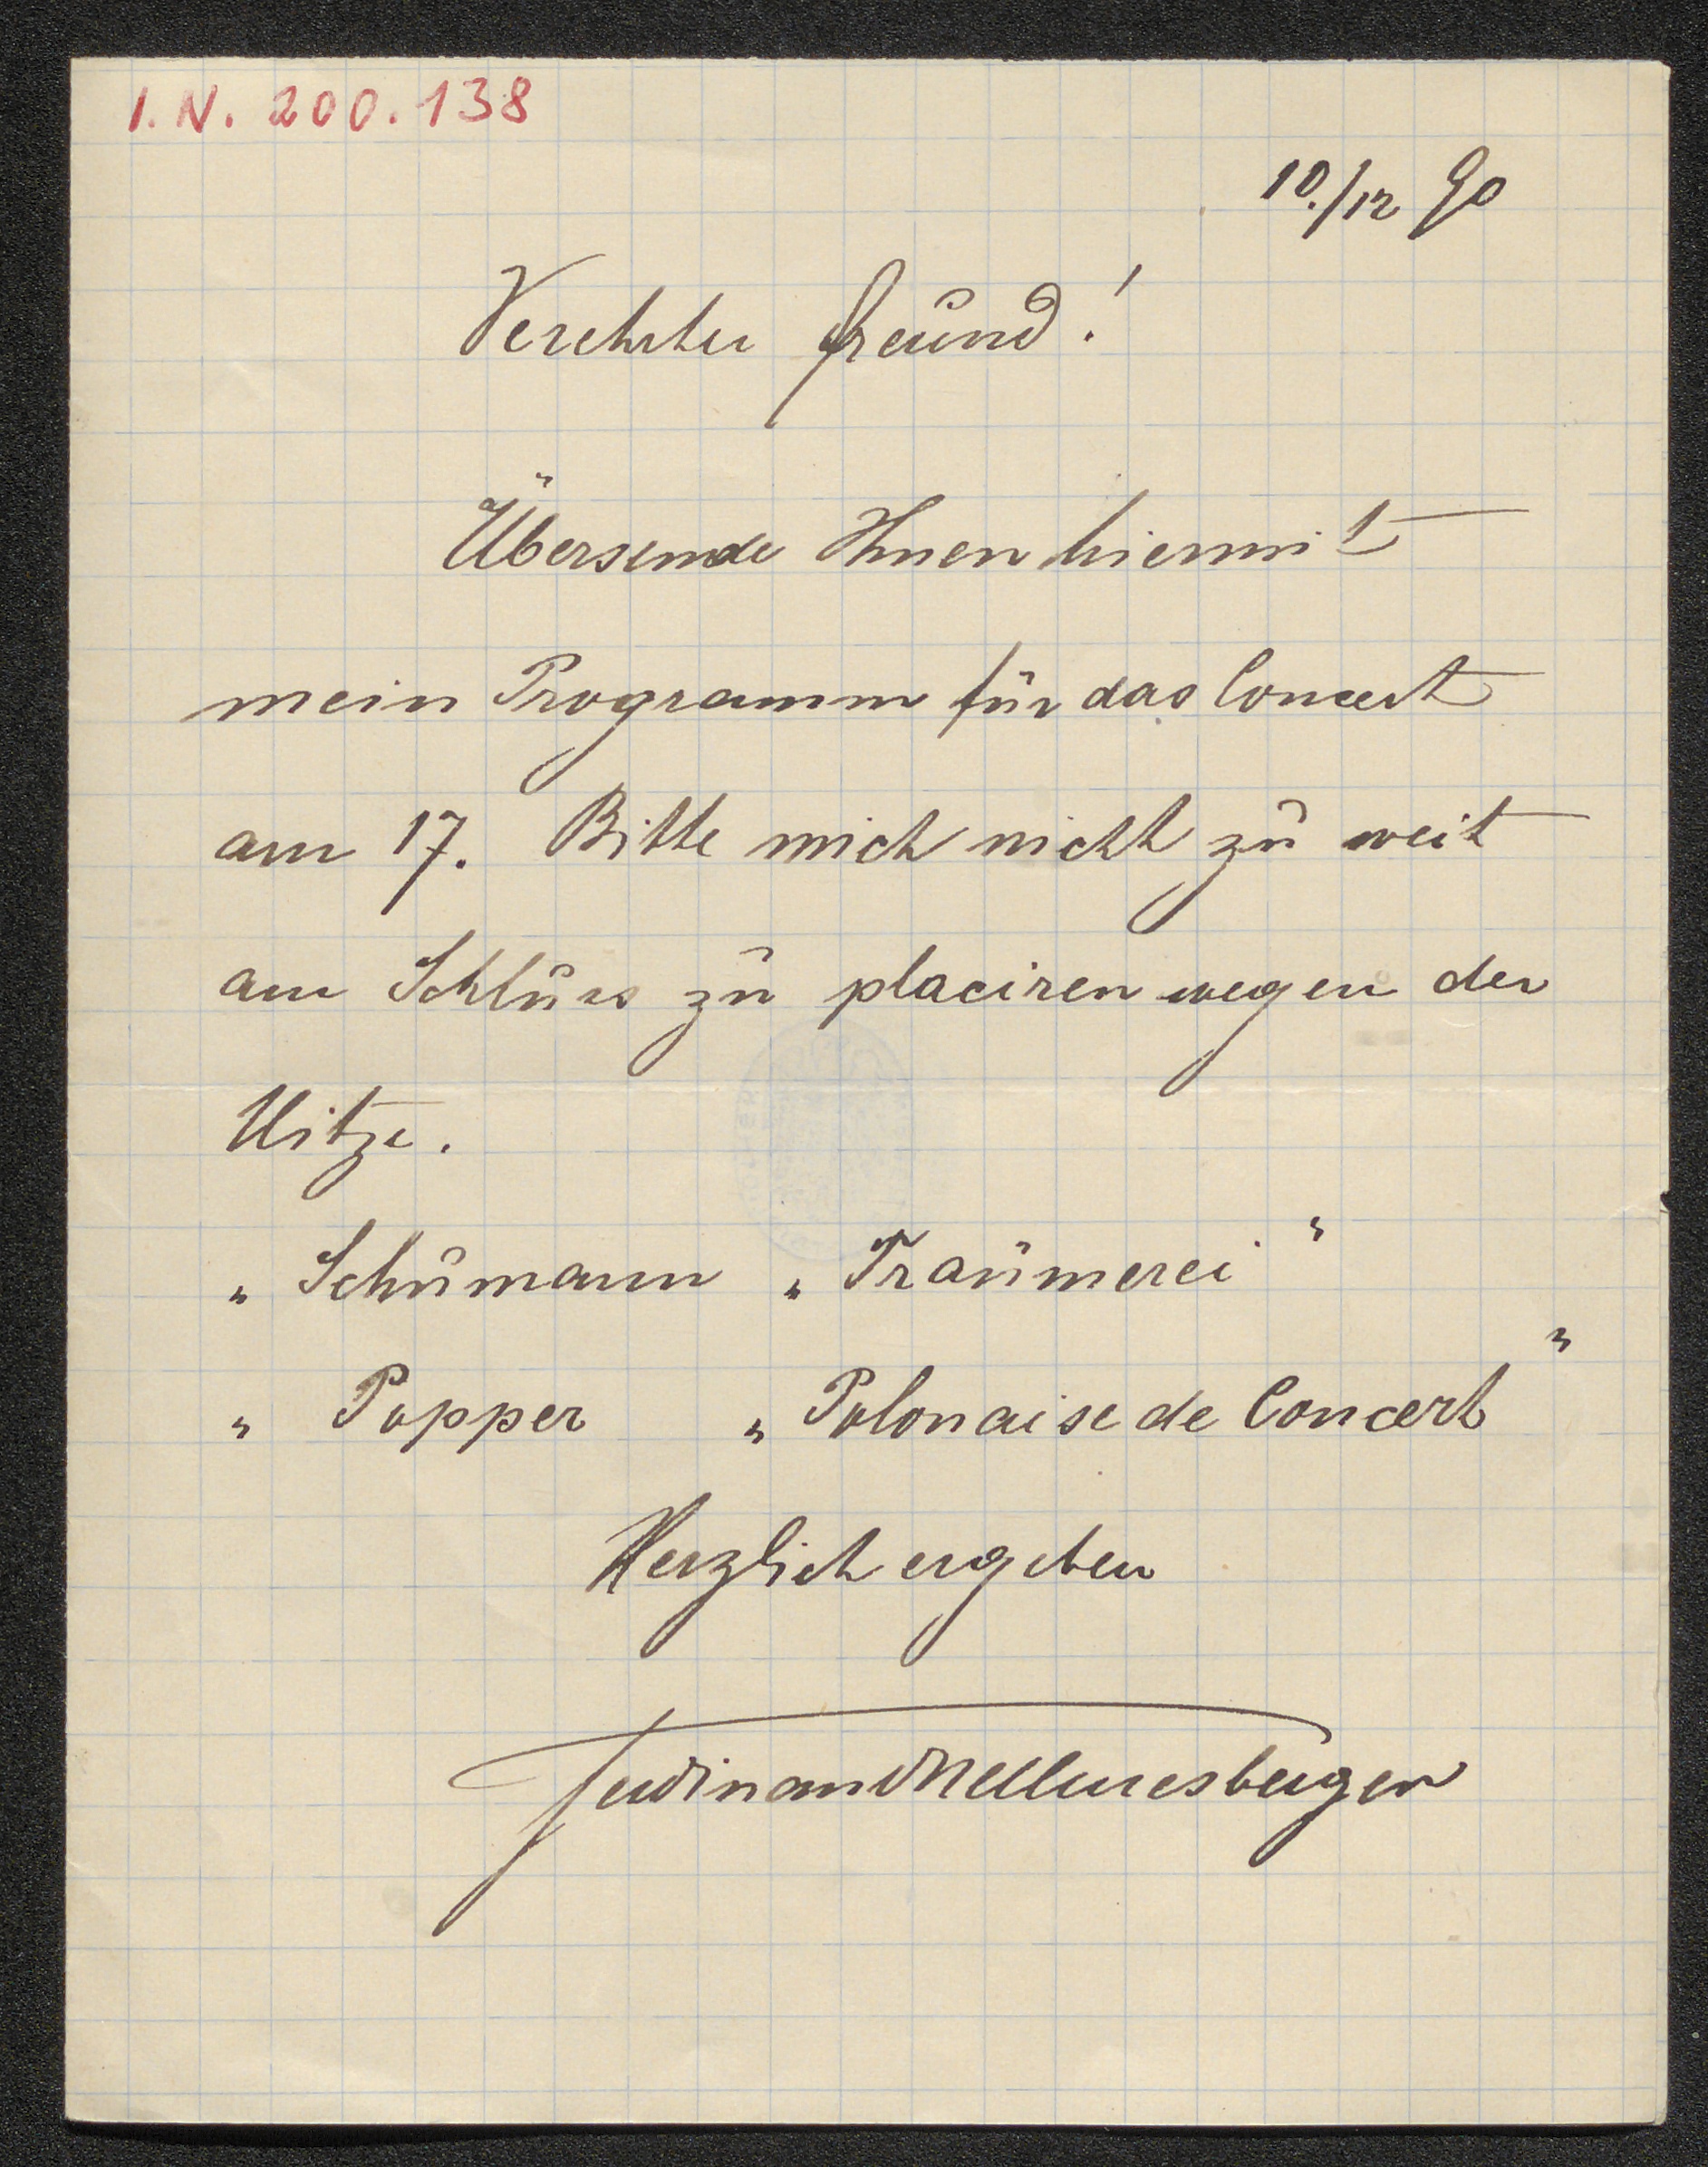 I.N. 200.138
10./12 90
Verehrter Freund!
Übersende Ihnen hiermit
mein Programm für das Concert
am 17. Bitte mich nicht zu weit
am Schluss zu placiren wegen der
Hitze.
„ Schumann „Traumerei"
„ Popper „Polonaise de Concert"
Herzlich ergeben
Ferdinand Hellmesberger